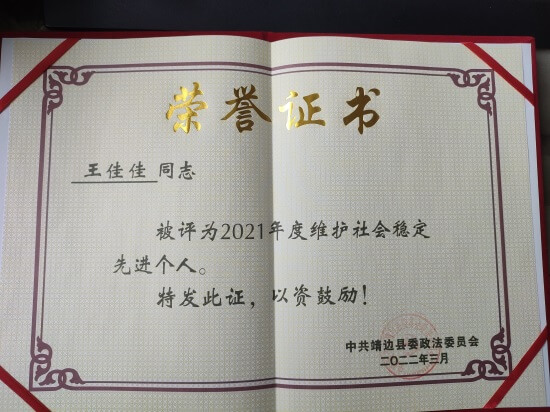 荣誉证书
王佳佳 同志
被评为2021年度维护社会稳定
先进个人。
特发此证，以资鼓励！
中共靖边县委政法委员会
二〇二二年三月